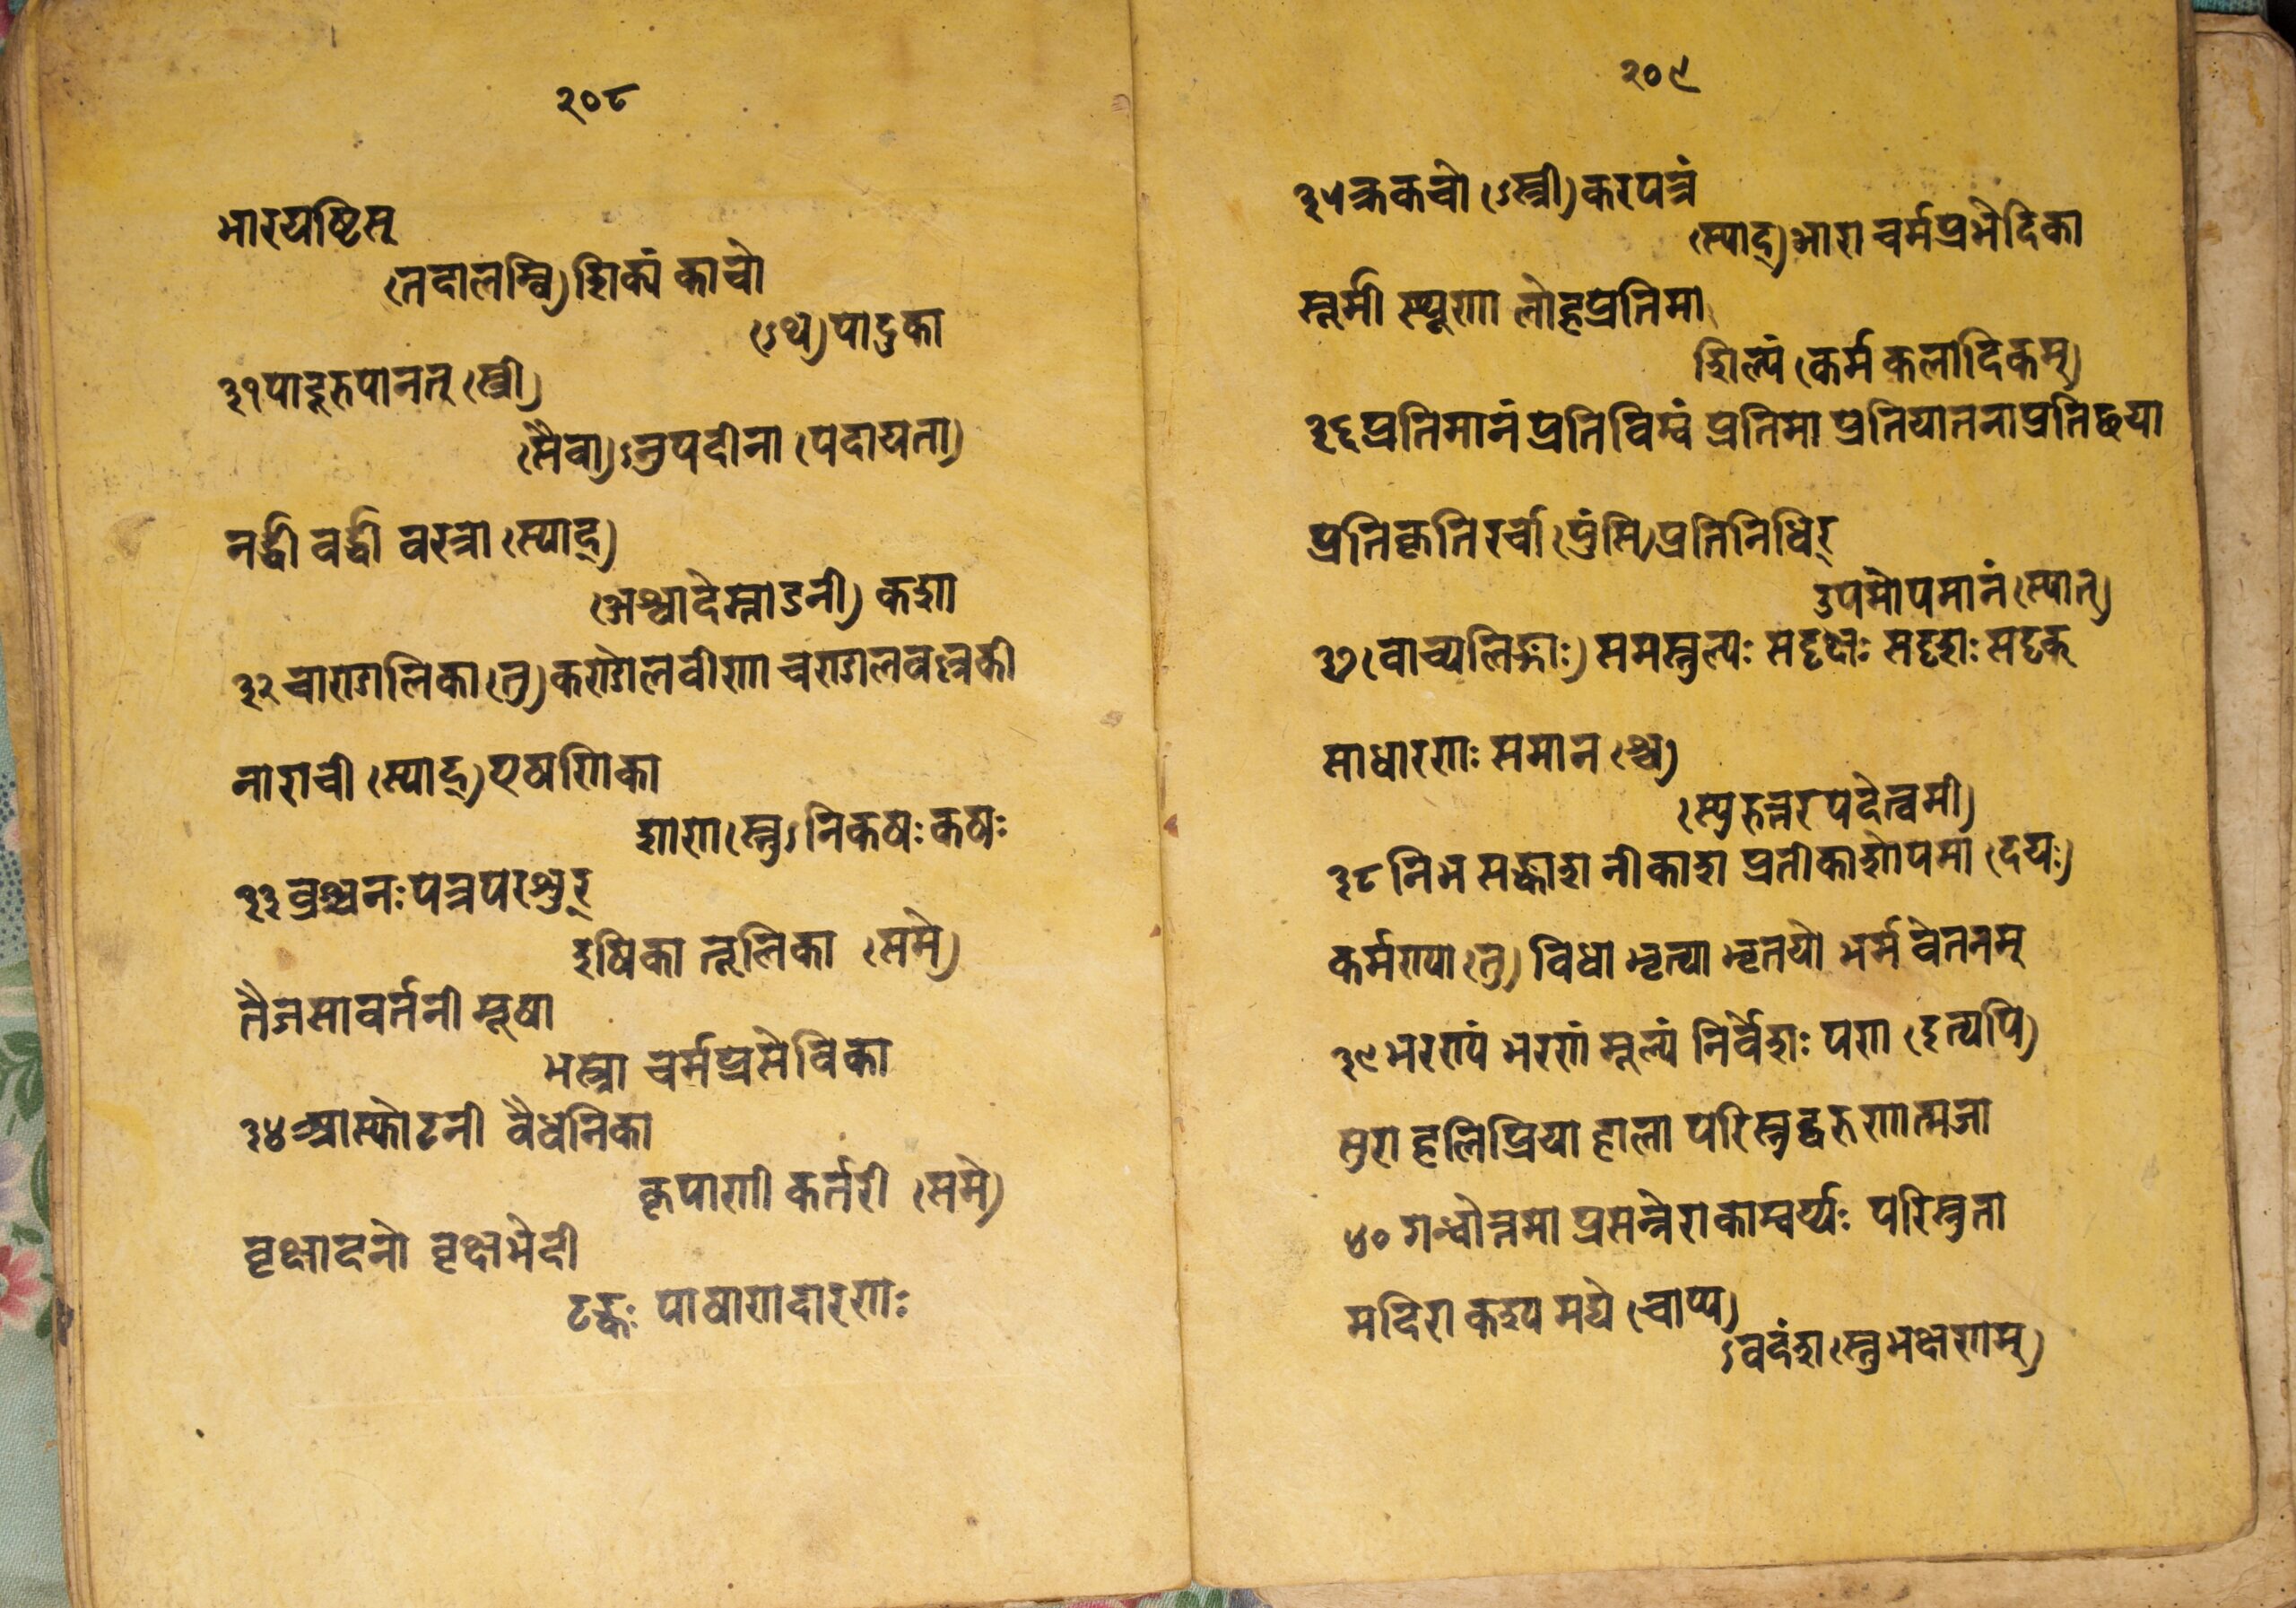 २०८
भारयष्टिस्
(तदालम्बि) शिक्यं काचो
(ऽथ) पादुका
३१ पादूरुपानत् (स्त्री)
(सैवा)ऽनुपदीना (पदायता)
नद्ध्री वर्द्ध्री वरत्रा (स्याद्)
(अश्वादेस्ताडनी) कशा
३२ चाण्डालिका (तु) कण्डोलवीणा चण्डालवल्लकी
नाराची (स्याद्) एषणिका
शाण(स्तु) निकषः कषः
३३ व्रश्चनः पत्रपरशुर्
इषिका तूलिका (समे)
तैजसावर्तनी मूषा
भस्त्रा चर्मप्रसेविका
३४ आस्फोटनी वैधनिका
कृपाणी कर्तरी (समे)
वृक्षादनो वृक्षभेदी
टङ्कः पाषाणदारणः
२०९
३५ क्रकचो (ऽस्त्री) करपत्रं
(स्याद्) आरा चर्मप्रभेदिका
सूर्मी स्थूणा लोहप्रतिमा
शिल्पं (कर्म कलादिकम्)
३६ प्रतिमानं प्रतिविम्वं प्रतिमा प्रतियातना प्रतिछया
प्रतिकृतिरर्चा (पुंसि) प्रतिनिधिर्
उपमोपमानं (स्यात्)
३७ (वाच्यलिङ्गाः) समस्तुल्यः सदृक्षः सदृशः सदृक्
साधारणः समान (श्च)
(स्युरुत्तरपदेत्वमी)
३८ निभ सङ्काश नीकाश प्रतीकाशोपमा (दयः)
कर्मण्या (तु) विधा भृत्या भृतयो भर्म वेतनम्
३९ भरण्यं भरणं मूल्यं निर्वेशः पण (इत्यपि)
सुरा हलिप्रिया हाला परिस्रुद्वरुणात्मजा
४० गन्धोत्तमा प्रसन्नेरा कादम्बर्य्यः परिस्रुता
मदिरा कश्य मद्ये (चाप्य)
ऽवदंश (स्तु भक्षणम्)